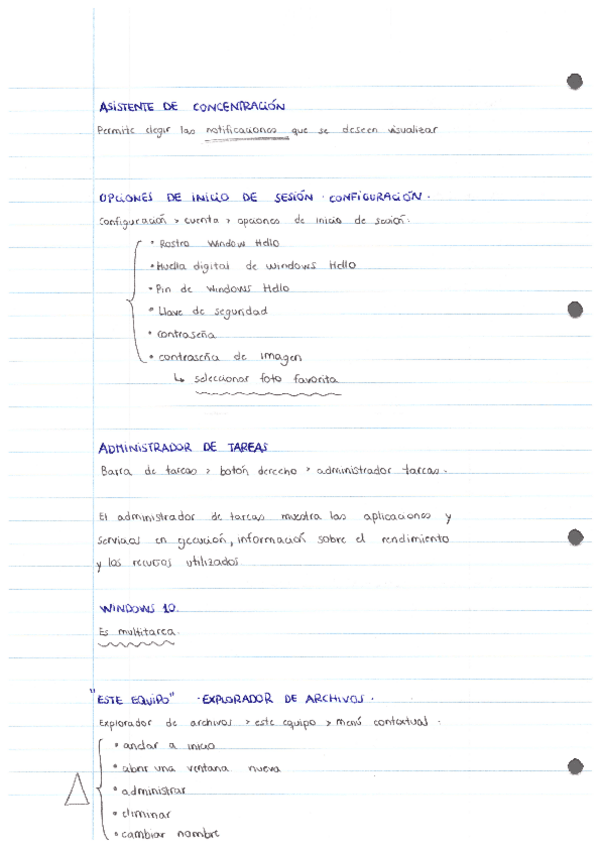 ASISTENTE DE CONCENTRACIÓN
Permite elegir las notificaciones que se deseen visualizar
OPCIONES DE INICIO DE SESIÓN · CONFIGURACIÓN ·
Configuración > cuenta > opciones de inicio de sesión.
• Rostro Window Hello
• Huella digital de windows Hello
• Pin de windows Hello
• Llave de seguridad
• contraseña
• contraseña de imagen
↳ seleccionar foto favorita
ADMINISTRADOR DE TAREAS
Barra de tareas > botón derecho > administrador tareas.
El administrador de tareas muestra las aplicaciones y
servicios en ejecución, información sobre el rendimiento
y los recursos utilizados
WINDOWS 10.
Es multitarea.
"ESTE EQUIPO" · EXPLORADOR DE ARCHIVOS ·
Explorador de archivos > este equipo > menú contextual.
• anclar a inicio
• abrir una ventana nueva
• administrar
• eliminar
• cambiar nombre